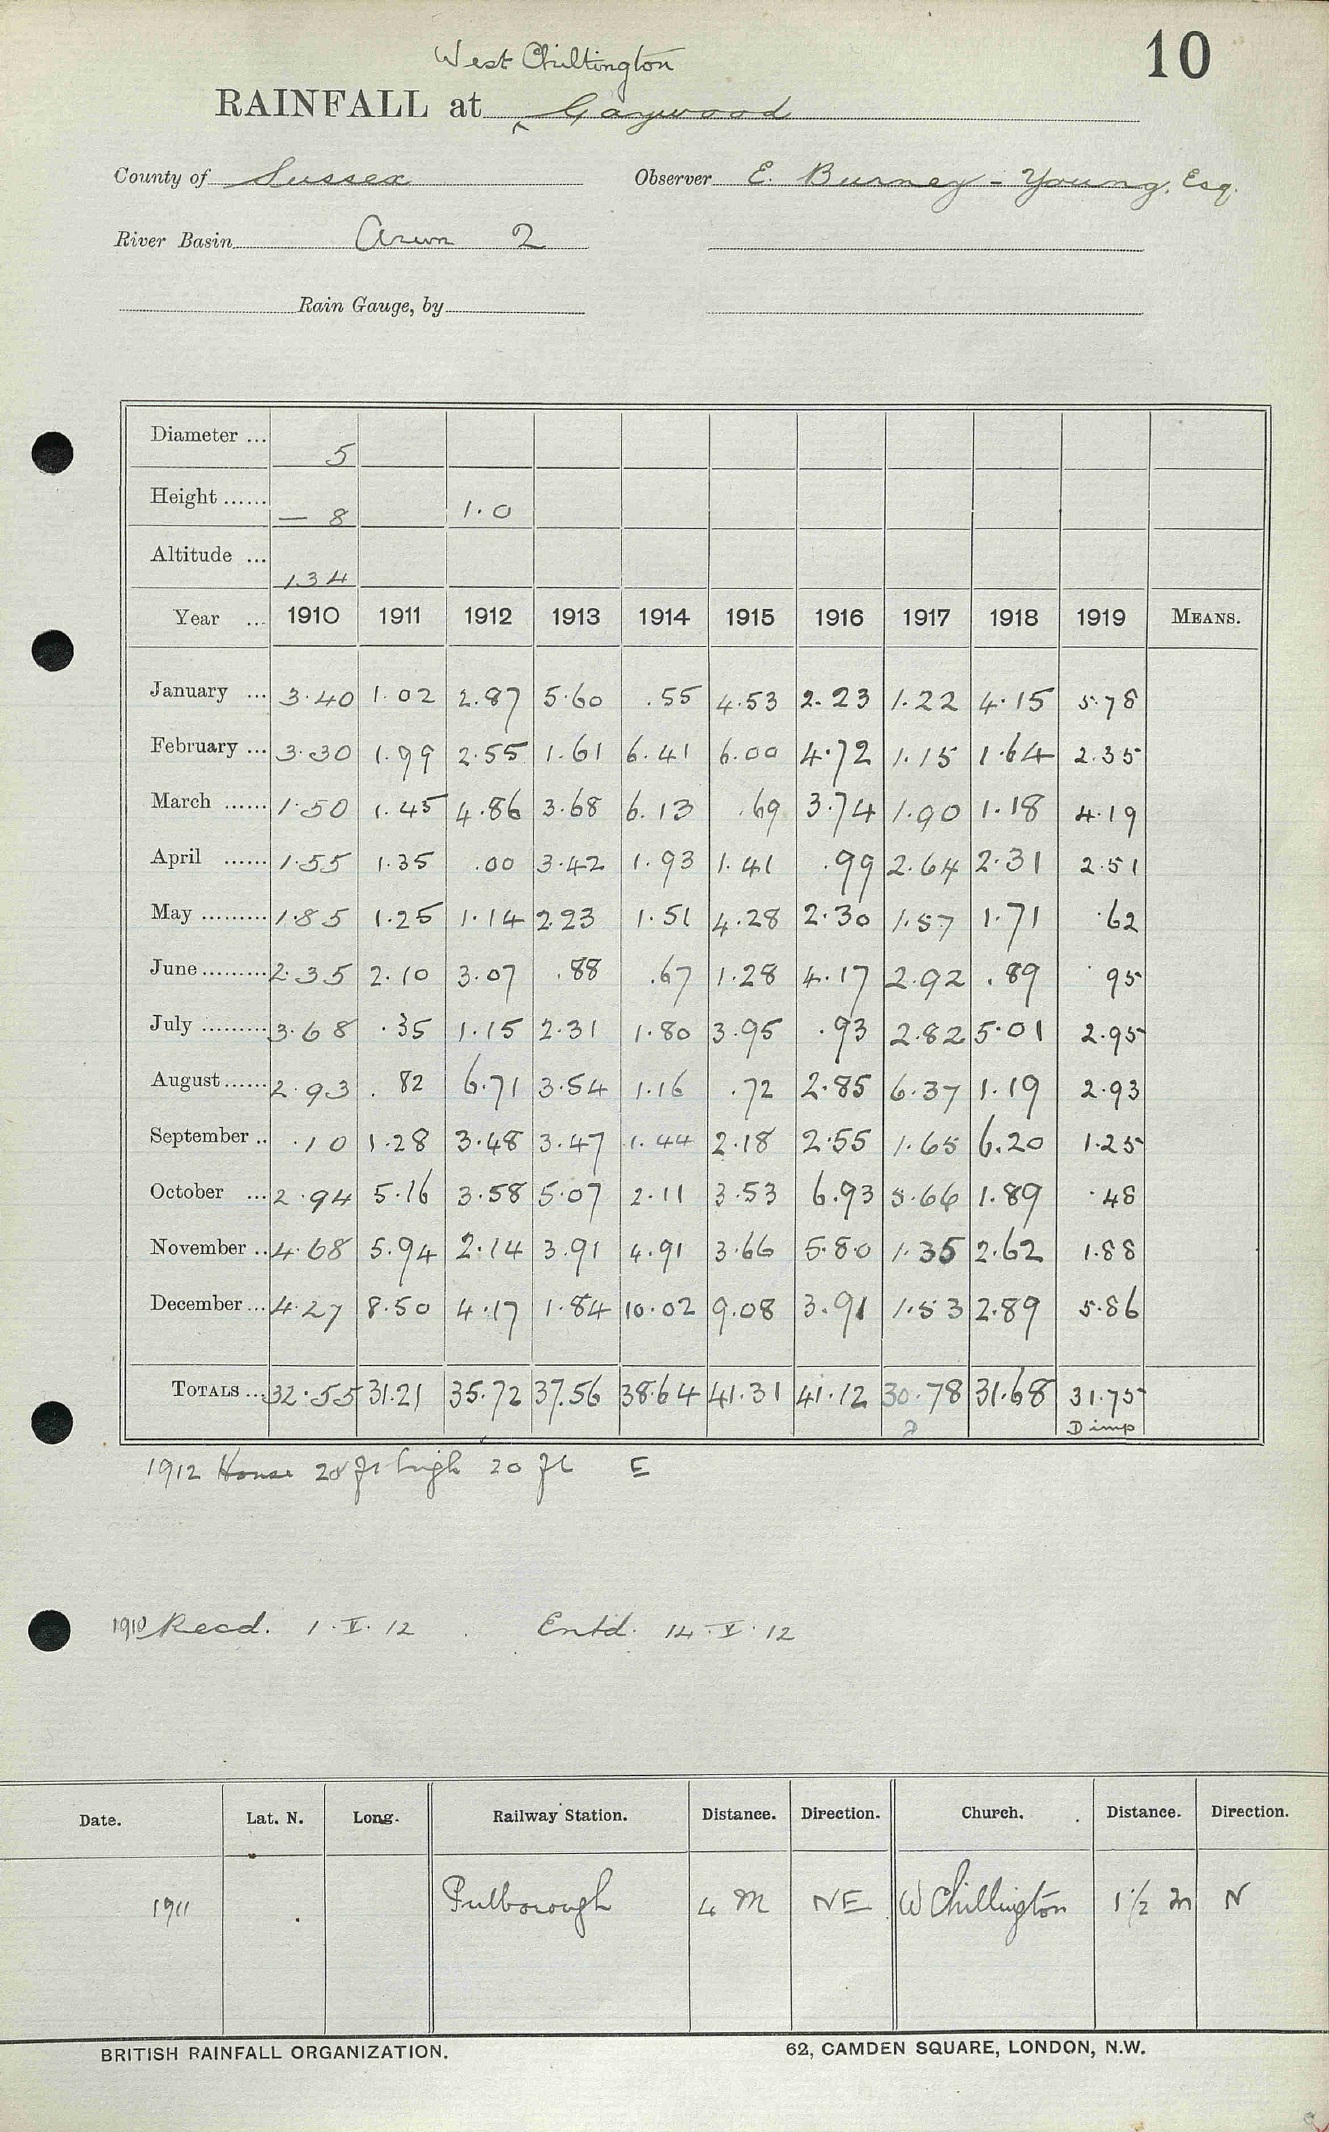 10
West Chiltington
RAINFALL at Gaywood
County of Sussex Observer E. Burney-Young, Esq.
River Basin Arun 2
Rain Gauge, by
Diameter ... 5
Height ...... — 8 1.0
Altitude ... 134
Year ... 1910 1911 1912 1913 1914 1915 1916 1917 1918 1919 MEANS.
January ... 3.40 1.02 2.87 5.60 .55 4.53 2.23 1.22 4.15 5.78
February ... 3.30 1.99 2.55 1.61 6.41 6.00 4.72 1.15 1.64 2.35
March ...... 1.50 1.45 4.86 3.68 6.13 .69 3.74 1.90 1.18 4.19
April ...... 1.55 1.35 .00 3.42 1.93 1.41 .99 2.64 2.31 2.51
May ......... 1.85 1.25 1.14 2.23 1.51 4.28 2.30 1.57 1.71 .62
June ......... 2.35 2.10 3.07 .88 .67 1.28 4.17 2.92 .89 .95
July ......... 3.68 .35 1.15 2.31 1.80 3.95 .93 2.82 5.01 2.95
August ...... 2.93 .82 6.71 3.54 1.16 .72 2.85 6.37 1.19 2.93
September .. .10 1.28 3.48 3.47 1.44 2.18 2.55 1.65 6.20 1.25
October ... 2.94 5.16 3.58 5.07 2.11 3.53 6.93 5.66 1.89 .48
November .. 4.68 5.94 2.14 3.91 4.91 3.66 5.80 1.35 2.62 1.88
December ... 4.27 8.50 4.17 1.84 10.02 9.08 3.91 1.53 2.89 5.86
TOTALS ... 32.55 31.21 35.72 37.56 38.64 41.31 41.12 30.78 31.68 31.75
D imp
1912 House 28 ft high 20 ft E
1910 Recd. 1.V.12 Entd. 14.V.12
Date. Lat. N. Long. Railway Station. Distance. Direction. Church. Distance. Direction.
1911 Pulborough 4 M NE W Chillington 1½ m N
BRITISH RAINFALL ORGANIZATION. 62, CAMDEN SQUARE, LONDON, N.W.